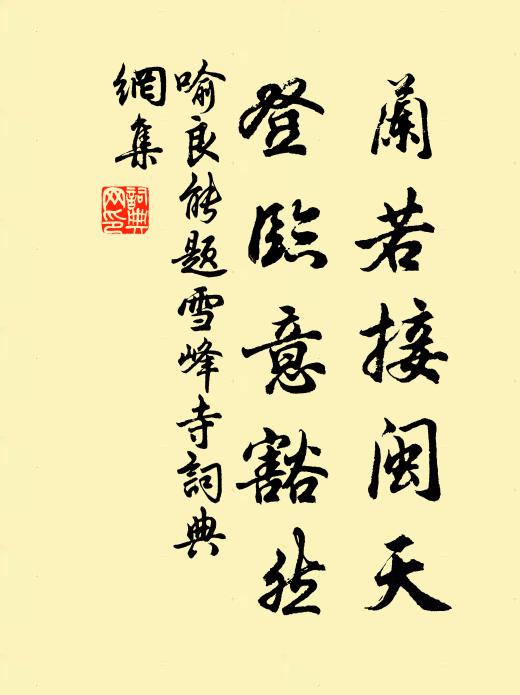 蘭若接闽天
登臨意豁然
喻良能題雪峰寺詞典
網集
詞典網印